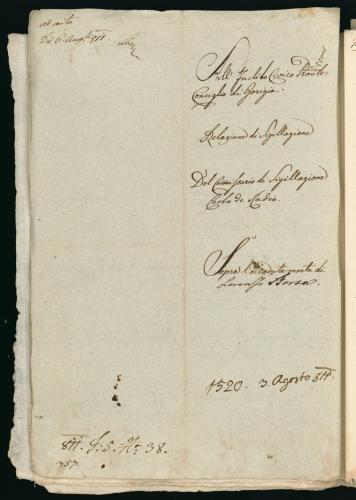 ad acta
De 6 Aug. 811.
All' Inclito Civico Prov.le
Consiglio di Gorizia.
Relazione di Sigillazione
Del Comissario di Sigillazione
Carlo de
Sopra l'accaduta morte di
Lorenzo
1520. 3. Agosto 811.
811. F: 5. N: 38.
357.